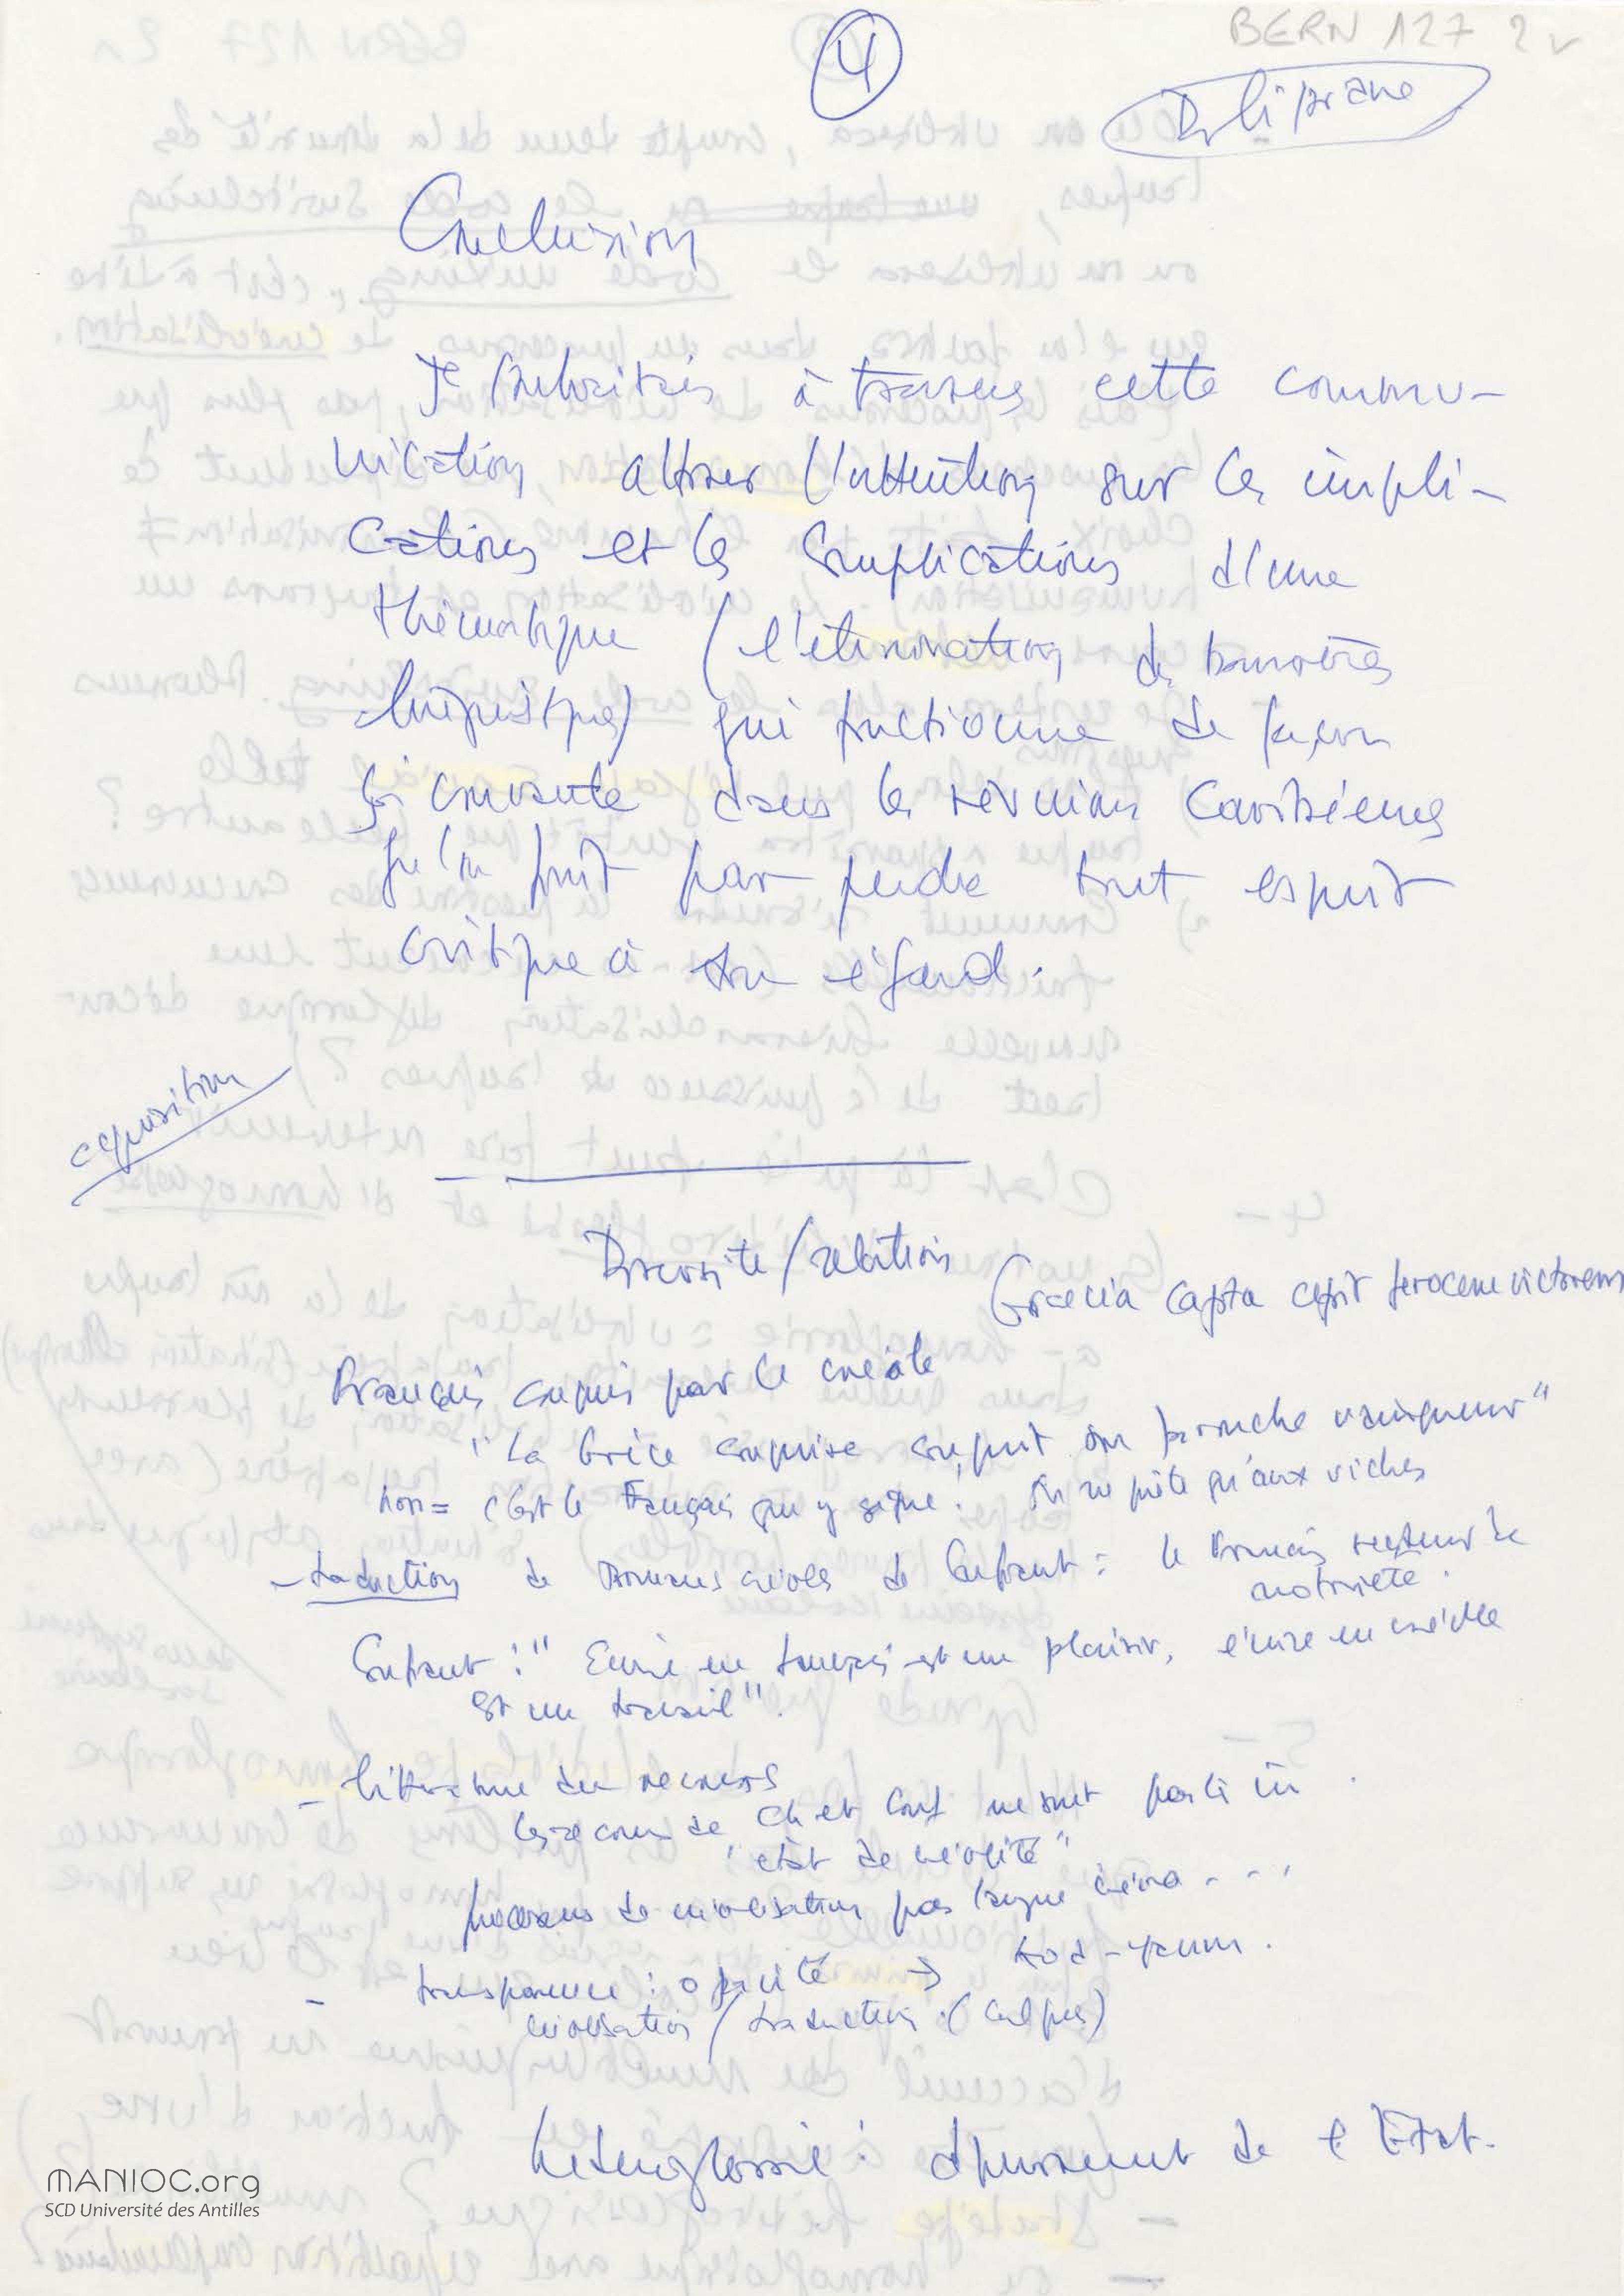 4
BERN 127 2v
Doliprane
Conclusion
Je souhaitais à travers cette commu-
nication attirer l'attention sur les impli-
cations et les complications d'une
thématique (l'élimination des barrières
linguistiques) qui fonctionne de façon
si constante dans les réunions Caribéennes
qu'on finit par perdre tout esprit
critique à son égard.
acquisition
Diversité / relation
Graecia capta cepit ferocem victorem
Français conquis par le créole
"La Grèce conquise conquit son farouche vainqueur"
non = c'est le Français qui y gagne. On ne prête qu'aux riches
- traduction de romans créoles de Confiant : le Français vecteur de
notoriété.
Confiant : "Ecrire en français est un plaisir, écrire en créole
est un travail".
- littérature du recours
les recours de Ch et Conf ne sont pas liés
"état de créolité"
processus de créolisation pas langue créole ...
- transparence : opacité →
créolisation / traduction (calques)
heteroglossie : de l'Etat.
MANIOC.org
SCD Université des Antilles